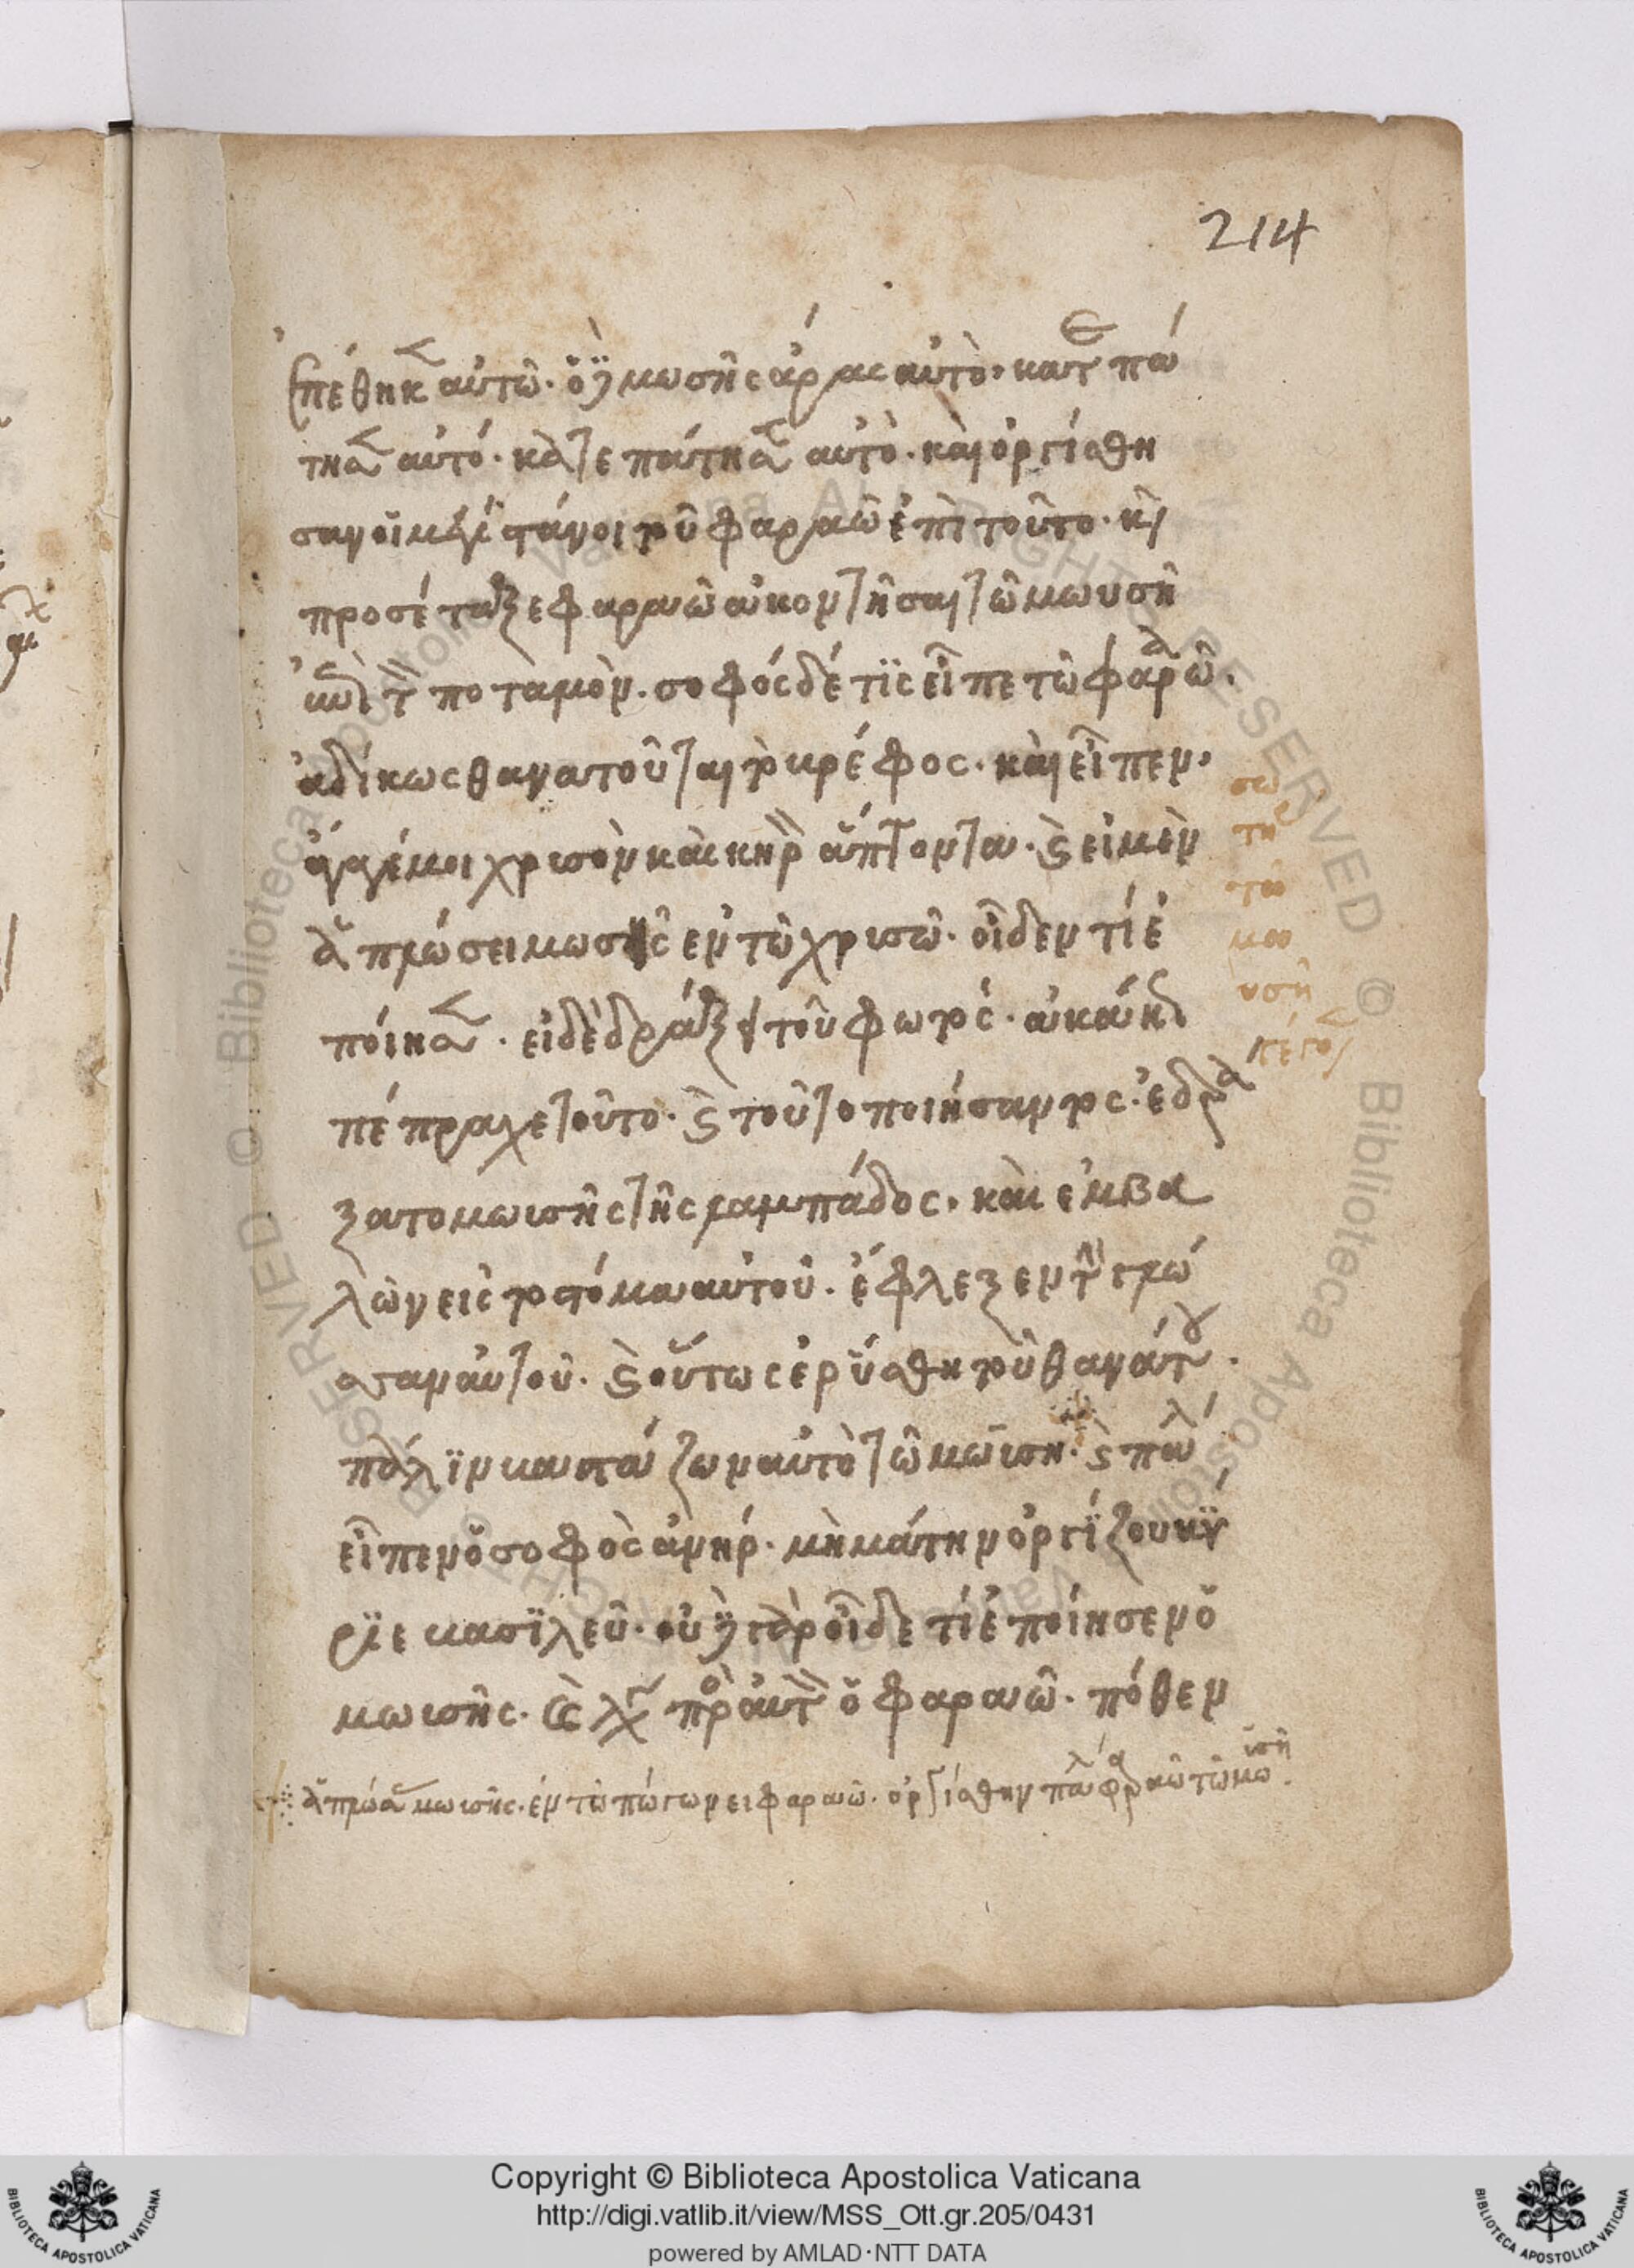 214
ἐπέθηκεν αὐτῶ. ὁ δὲ μωσῆς ἄρας αὐτὸ. κατεπά
τησεν αὐτό. καὶ ἐπάτησεν αὐτὸ. καὶ ὀργίσθη
σαν οἱ μεγιστάνοι τοῦ φαραῶ ἐπὶ τοῦτο. κὶ
προσέταξε φαραῶ ἀκοντῆσαι τῶ μωυσῆ
εἰς τὸν ποταμὸν. σοφός δέ τϊς εἶπε τῶ φαραῶ.
ἀδίκως θανατοῦται τὸ βρέφος. καὶ εἶπεν.
ἄγαγέ μοι χρισὸν καὶ κηρὸν ἄπτοντα. καὶ εἰ μὲν
ἁπλώσει μωσῆς ἐν τῶ χρισῶ. οἶδεν τί ἐ
ποίησεν. εἰ δὲ δράξει τοῦ φωτός. ἀκάκως
πέπραχε τοῦτο. καὶ τοῦτο ποιήσαντος. ἐδρά
ξατο μωισῆς τῆς λαμπάδος. καὶ ἐμβα
λὼν εἰς τὸ στόμα αὐτοῦ. ἔφλεξεν τὴν γλώ
σσαν αὐτοῦ. καὶ οὕτως ἐρύσθη τοῦ θανάτου.
πάλϊν βαστάζων αὐτὸ τῶ μωϊση. καὶ πάλιν
εἶπεν ὁ σοφὸς ἀνήρ. μὴ μάτην ὀργίζου κύ
ρϊε βασϊλεῦ. οὐδὲ γὰρ οἶδε τί ἐποίησεν ὁ
μωισῆς. καὶ λέγει πρὸς αὐτὸν ὁ φαραῶ. πόθεν
ἁπλώσας μωισῆς. ἐν τῶ πώγωνει φαραῶ. ὀργίσθην πάλιν φαραῶ τῶ μωισῆ.
Copyright © Biblioteca Apostolica Vaticana
http://digi.vatlib.it/view/MSS_Ott.gr.205/0431
powered by AMLAD·NTT DATA